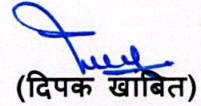 (दिपक खाबित)